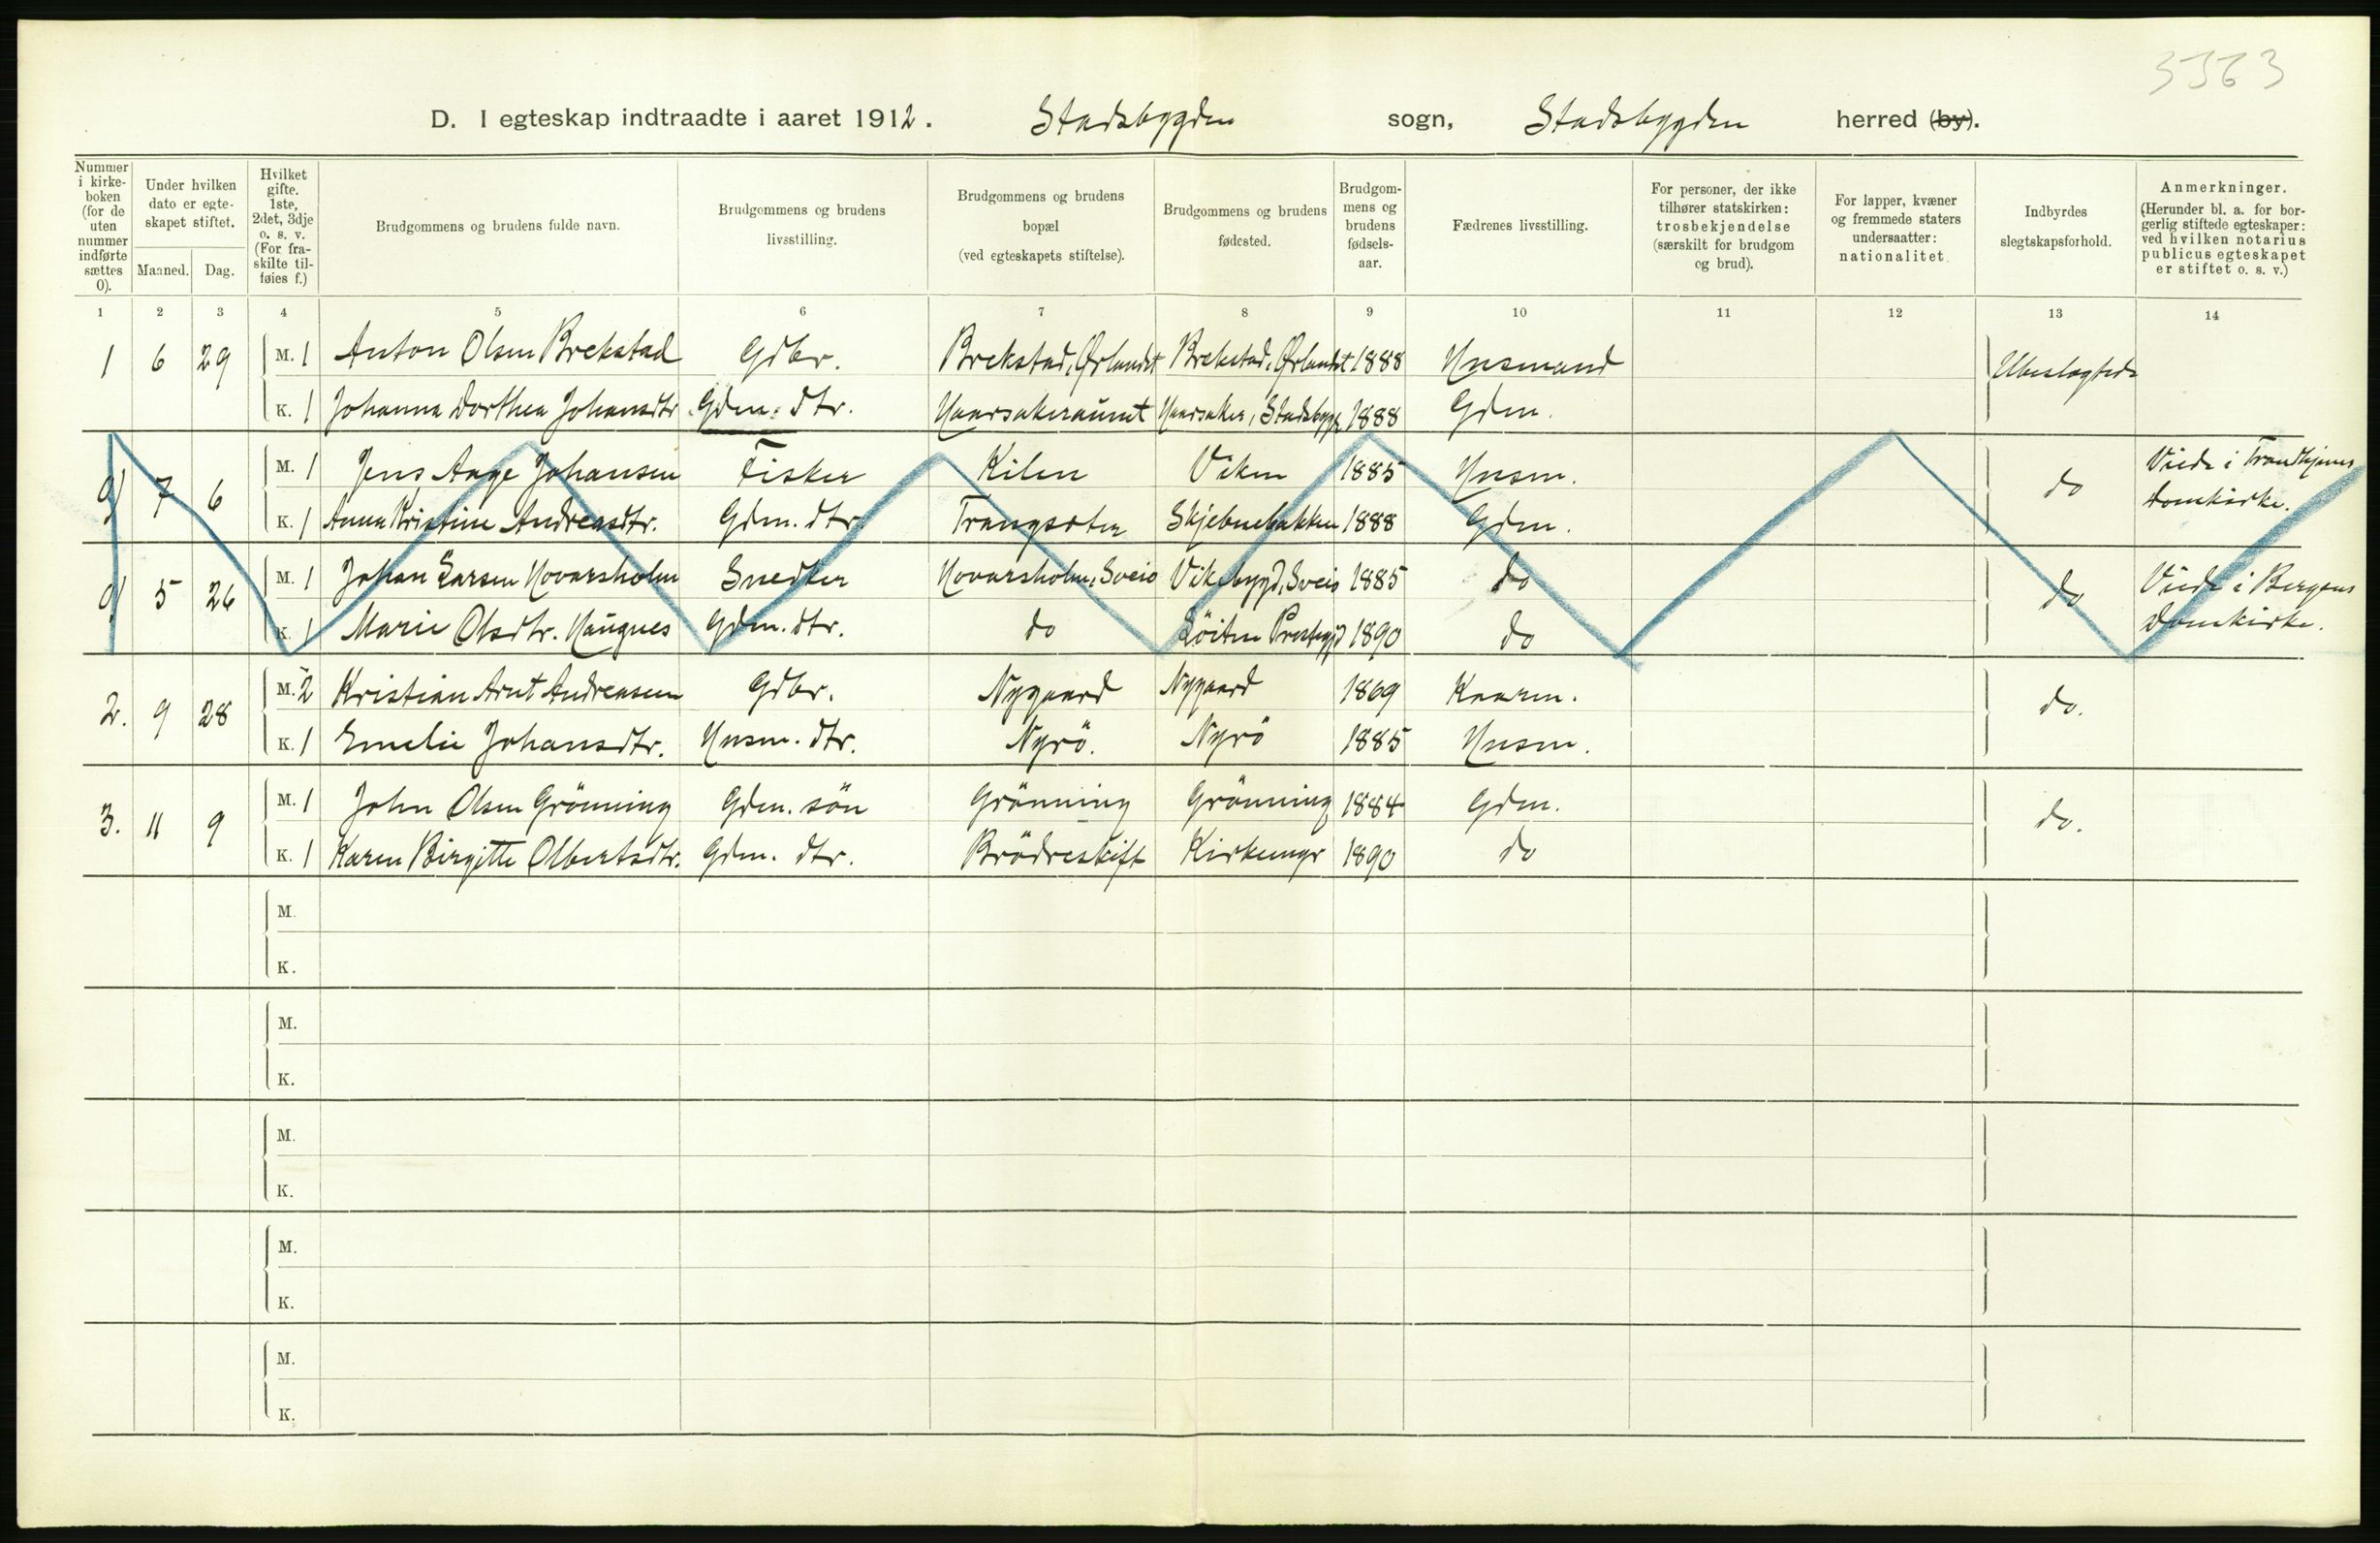 3563
D. I egteskap indtraadte i aaret 1912. Stadsbygden sogn, Stadsbygden herred (by).
Nummer i kirkeboken (for de uten nummer indførte sættes 0). Under hvilken dato er egteskapet stiftet. Maaned. Dag. Hvilket gifte. 1ste, 2det, 3dje o. s. v. (For fraskilte tilføies f.) Brudgommens og brudens fulde navn. Brudgommens og brudens livsstilling. Brudgommens og brudens bopæl (ved egteskapets stiftelse). Brudgommens og brudens fødested. Brudgommens og brudens fødselsaar. Fædrenes livsstilling. For personer, der ikke tilhører statskirken: trosbekjendelse (særskilt for brudgom og brud). For lapper, kvæner og fremmede staters undersaatter: nationalitet. Indbyrdes slegtskapsforhold. Anmerkninger. (Herunder bl. a. for borgerlig stiftede egteskaper: ved hvilken notarius publicus egteskapet er stiftet o. s. v.)
1 2 3 4 5 6 7 8 9 10 11 12 13 14
1 6 29 M. 1 Anton Olsen Brekstad Gdbr. Brekstad, Ørlandet Brekstad, Ørlandet 1888 Husmand Ubeslægtede
K. 1 Johanna Dorthea Johansdtr. Gdm. dtr. Haarsakeraunet Haarsaker, Stadsbygd 1888 Gdm.
0) 7 6 M. 1 Jens Aage Johansen Fisker Kilen Viken 1885 Husm. do Viede i Trondhjems Domkirke.
K. 1 Anna Kristine Andreasdtr. Gdm. dtr. Trangsæter Skjebnebakken 1888 Gdm.
0) 5 26 M. 1 Johan Larsen Hovarsholm Snedker Hovarsholm, Sveio Vikebygd, Sveio 1885 do do Viede i Bergens Domkirke.
K. 1 Marie Olsdtr. Haugnes Gdm. dtr. do 1890 do
2. 9 28 M. 2 Kristian Arnt Andreasen Gdbr. Nygaard Nygaard 1869 Kaarm. do.
K. 1 Emelie Johansdtr. Husm. dtr. Nyrö. Nyrö 1885 Husm.
3. 11 9 M. 1 John Olsen Grönning Gdm. sön Grönning Grönning 1884 Gdm. do.
K. 1 Karen Birgitte Olbertsdtr. Gdm. dtr. Brödreskift Kirkemyr 1890 do
M.
K.
M.
K.
M.
K.
M.
K.
M.
K.